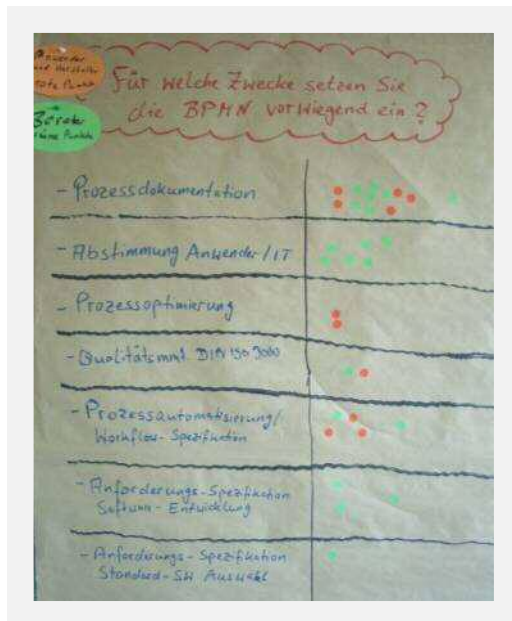 Anwender
und Hersteller
rote Punkte
Berater
grüne Punkte
Für welche Zwecke setzen Sie
die BPMN vorwiegend ein?
- Prozessdokumentation
- Abstimmung Anwender/IT
- Prozessoptimierung
- Qualitätsmmt DIN ISO 9000
- Prozessautomatisierung/
Workflow-Spezifikation
- Anforderungs-Spezifikation
Software-Entwicklung
- Anforderungs-Spezifikation
Standard-SW Auswahl